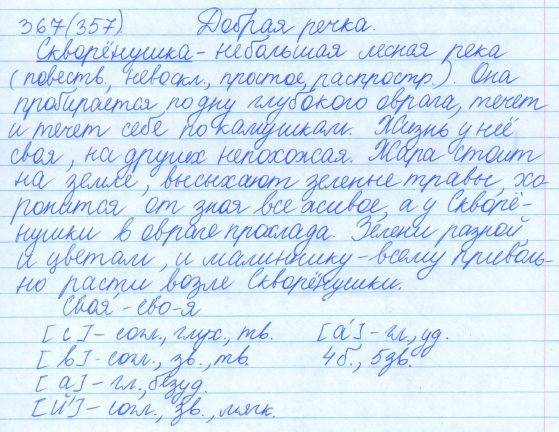 367(357) Добрая речка.
Скворёнушка - небольшая лесная река
(повесть, невоскл, простое, распростр.). Она
пробирается по дну глубокого оврага, течет
и течет себе по камушкам. Жизнь у неё
своя, на других непохожая. Жара стоит
на земле, высыхают зеленые травы, хо-
ронится от зноя все живое, а у Скворё-
нушки в овраге прохлада. Зелени разной
и цветам, и малиннику - всему приволь-
но расти возле Скворёнушки.
Своя - сво-я
[с] - согл., глух., тв. [а́] - гл., уд.
[в] - согл., зв., тв. 4б., 5зв.
[а] - гл., безуд.
[й'] - согл., зв., мягк.